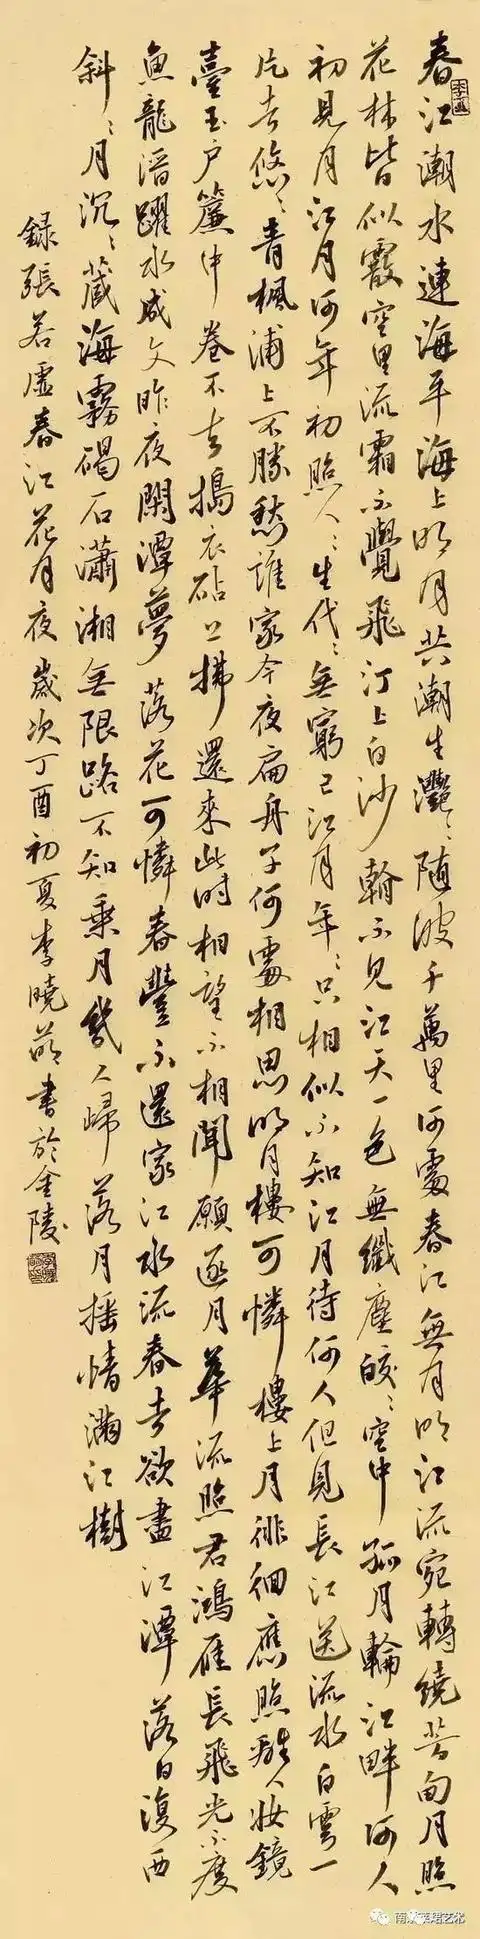 春江潮水連海平海上明月共潮生灔〻随波千萬里何處春江無月明江流宛轉繞芳甸月照
花林皆似霰空里流霜不覺飛汀上白沙看不見江天一色無纖塵皎〻空中孤月輪江畔何人
初見月江月何年初照人〻生代〻無窮已江月年〻只相似不知江月待何人但見長江送流水白雲一
片去悠〻青楓浦上不勝愁誰家今夜扁舟子何處相思明月樓可憐樓上月徘徊應照離人妝鏡
臺玉户簾中卷不去搗衣砧上拂還來此时相望不相聞願逐月華流照君鴻雁長飛光不度
魚龍潛躍水成文昨夜閑潭夢落花可憐春豐不還家江水流春去欲盡江潭落日復西
斜〻月沉〻藏海霧碣石瀟湘無限路不知乘月幾人歸落月摇情滿江樹
録張若虛春江花月夜歲次丁酉初夏李曉書於金陵
艺术